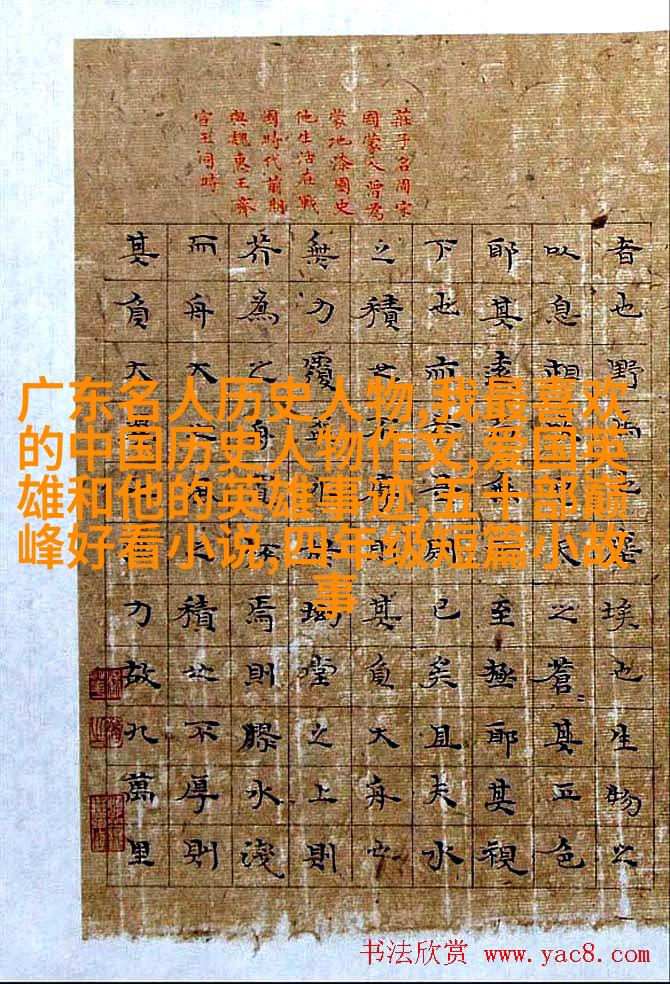 莊子名周宋
國蒙人曾為
蒙地漆園史
他生活在戰
國時代前期
與魏惠王齊
宣王同時
者也野馬也塵埃也生物之
以息相天之蒼其正色
耶其遠至極耶其視
下也而若是則已矣且夫水
之積也不則其負大舟也
無力覆水坳堂之上則
芥為之舟置杯焉則膠水淺
而舟大之積也不厚則
其負大力故九萬里
广东名人历史人物,我最喜欢
的中国历史人物作文,爱国英
雄和他的英雄事迹,五十部巅
峰好看小说,四年级短篇小故
事
书法欣赏 www.yac8.com